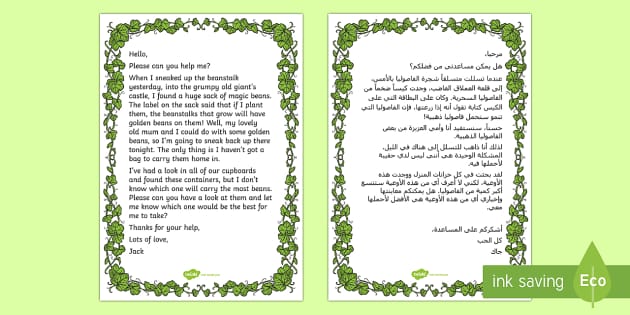 Hello,
Please can you help me?
When I sneaked up the beanstalk
yesterday, into the grumpy old giant's
castle, I found a huge sack of magic beans.
The label on the sack said that if I plant
them, the beanstalks that grow will have
golden beans on them! Well, my lovely
old mum and I could do with some golden
beans, so I'm going to sneak back up there
tonight. The only thing is I haven't got a
bag to carry them home in.
I've had a look in all of our cupboards
and found these containers, but I don't
know which one will carry the most beans.
Please can you have a look at them and let
me know which one would be the best for
me to take?
Thanks for your help,
Lots of love,
Jack
twinkl
مرحبا،
هل يمكن مساعدتي من فضلكم؟
عندما تسللت متسلقاً شجرة الفاصوليا بالأمس،
إلى قلعة العملاق الغاضب، وجدت كيساً ضخماً من
الفاصوليا السحرية. وكان على البطاقة التي على
الكيس كتابة تقول أنه إذا زرعتها، فإن الفاصوليا التي
تنمو ستحمل فاصوليا ذهبية!
حسناً، سنستفيد أنا وأمي العزيزة من بعض
الفاصوليا الذهبية.
لذلك أنا ذاهب للتسلل إلى هناك في الليل،
المشكلة الوحيدة هي أنني ليس لدي حقيبة
لأحملها فيه.
لقد بحثت في كل خزانات المنزل ووجدت هذه
الأوعية، لكني لا أعرف أي من هذه الأوعية ستتسع
أكبر كمية من الفاصوليا. هل يمكنكم معاينتها
وإخباري أي من هذه الأوعية هي الأفضل لأحملها
معي.
أشكركم على المساعدة،
كل الحب
جاك
twinkl
ink saving Eco